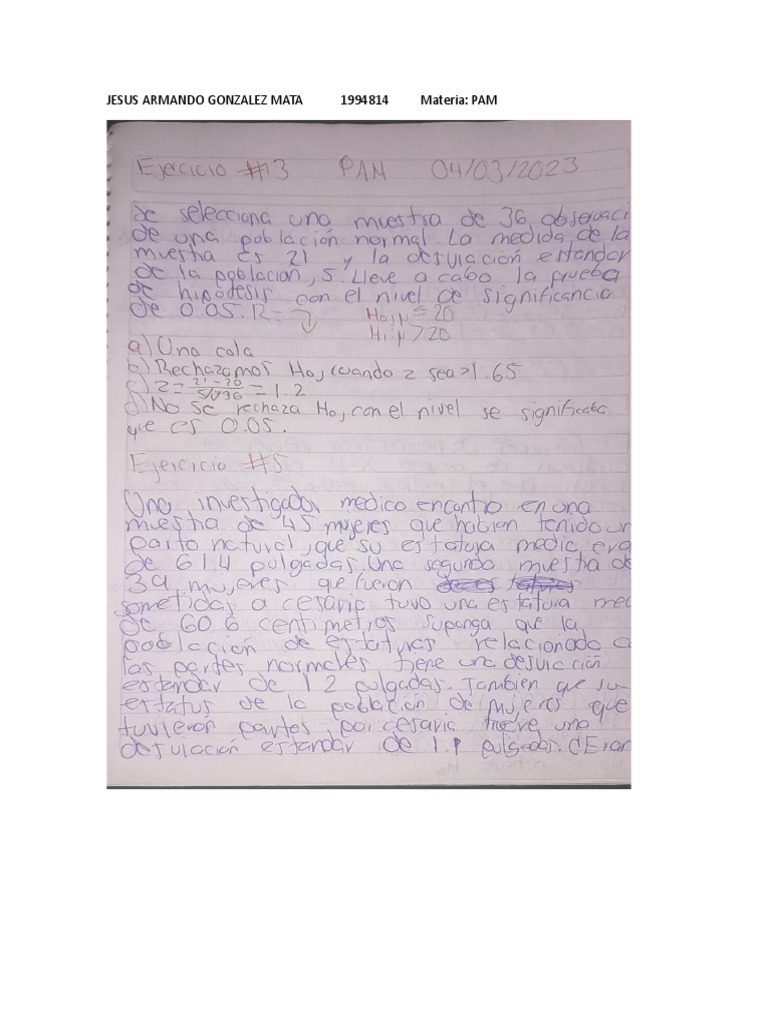 JESUS ARMANDO GONZALEZ MATA 1994814 Materia: PAM
Ejercicio #13 PAM 04/03/2023
Se selecciona una muestra de 36 observaci
de una población normal. La medida de la
muestra es 21 y la desviación estandar
de la población, 5. Lleve a cabo la prueba
de hipótesis con el nivel de significancia
de 0.05. R= H0, μ ≤ 20
H1, μ > 20
a) Una cola
b) Rechazamos H0, cuando z sea >1.65
c) z = 21-20 / 5/√36 = 1.2
d) No se rechaza H0, con el nivel se significata
que es 0.05.
Ejercicio #5
Una investigador medico encontro en una
muestra de 45 mujeres que habian tenido un
parto natural, que su estatura medic era
de 61.4 pulgadas. Una segunda muestra de
39 mujeres que fueron
sometidas a cesaria tuvo una estatura med
de 60.6 centimetros suponga que la
población de estaturas relacionada a
las partes normales tiene una desviación
estandar de 1.2 pulgadas. Tambien que su
estatus de la población de mujeres que
tuvieron partos por cesaria tiene una
desviación estandar de 1.1 pulgadas. ¿Eran